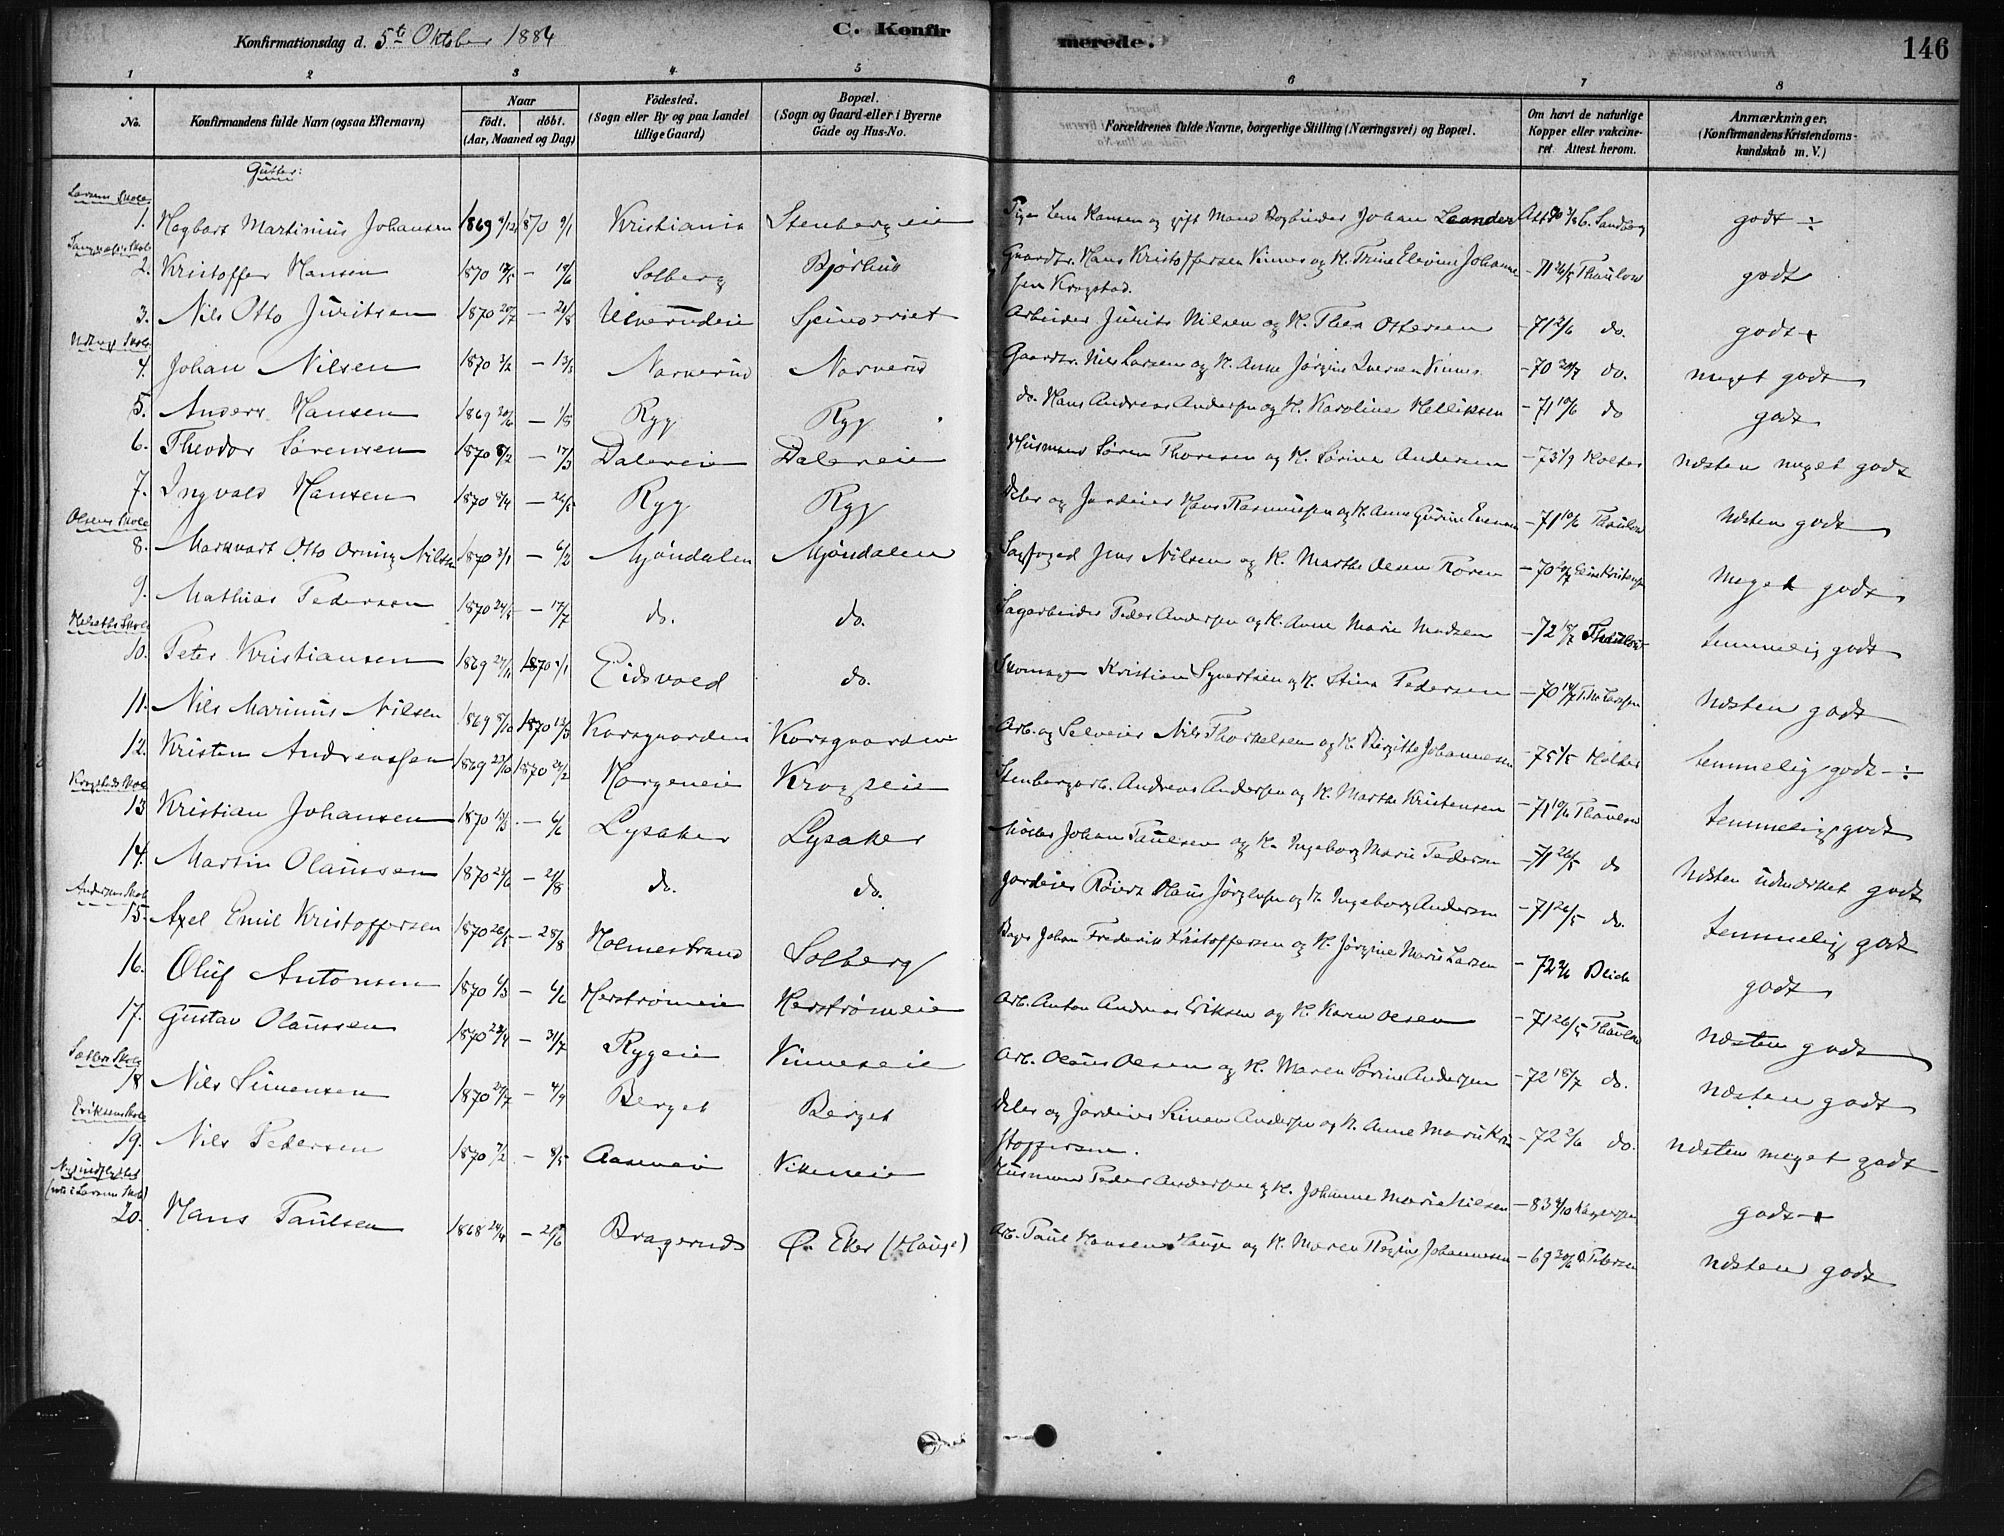 Konfirmationsdag d. 5te Oktober 1884
C. Konfir
merede.
146
1 2 3 4 5 6 7 8
No.
Konfirmandens fulde Navn (ogsaa Efternavn)
Naar
födt. döbt.
(Aar, Maaned og Dag)
Födested.
(Sogn eller By og paa Landet
tillige Gaard)
Bopæl.
(Sogn og Gaard eller i Byerne
Gade og Hus-No.
Forældrenes fulde Navne, borgerlige Stilling (Næringsvei) og Bopæl.
Om havt de naturlige
Kopper eller vakcine-
ret. Attest herom.
Anmærkninger.
(Konfirmandens Kristendoms-
kundskab m. V.)
Gutter:
Larsens Skole
1. Hagbart Martinius Johansen 1869 1870 Kristiania Stenbergeie Pige Hansen og gift Mand Bogbinder Johan Leander Sandberg godt ÷
2. Kristoffer Hansen 1870 — Solberg Bjørhus Gaardbr. Hans Kristoffersen Vinnes og H. Trine Elevine Johanne-
sen Krogstad. — 71 Thaulow godt
3. Nils Otto Juritsen 1870 — Ulverudeie Spinneriet Arbeider Jurits Nilsen og H. Thea Ottersen — 71 2/6 do. godt +
4. Johan Nilsen 1870 3/2 — 13/3 Narverud Narverud Gaardbr. Nils Larsen og H. Anne Jørgine Iversen Vinnes — 70 do. meget godt
5. Anders Hansen 1869 — 1/5 Ryg Ryg do. Hans Andreas Andersen og H. Karoline Helliksen — 71 10/6 do godt
6. Theodor Sørensen 1870 8/2 — 17/3 Dalereie Dalereie Husmand Søren Thoresen og H. Sørine Andersen — 73 1/9 Holter næsten meget godt
7. Ingvald Hansen 1870 8/4 — Ryg Ryg Deler og Jordeier Hans Rasmussen og H. Anne Gurine — 71 10/6 Thaulow næsten godt
Olsens Skole
8. Markvart Otto Orning Nilsen 1870 3/1 — 6/2 Mjøndalen Mjøndalen Sagfoged Jens Nilsen og H. Marthe Olsen — 70 meget godt
9. Mathias Pedersen 1870 — 17/7 do. do. Sagarbeider Peder Andersen og H. Anne Marie Madsen — 72 18/7 Thaulow temmelig godt
10. Peter Kristiansen 1869 1870 Eidsvold do. Skomager Kristian Syvertsen og H. Stina Pedersen — 70 næsten godt
11. Nils Marinus Nilsen 1869 8/10 1870 13/3 Korsgaarden Korsgaarden Arb. og Selveier Nils Thorkelsen og H. Birgitte Johannesen — 75 Holter temmelig godt — ÷
12. Kristen Andreassen 1869 23/10 1870 Horgeneie Krogseie Stenbergarb. Andreas Andersen og H. Marthe Kristensen — 71 10/6 Thaulow temmelig godt
Krogstads Skole
13 Kristian Johansen 1870 — 6/6 Lysaker Lysaker Møller Johan Paulsen og H. Ingeborg Marie Pedersen — 71 26/5 do næsten udmærket godt
14. Martin Olaussen 1870 — 21/8 do. do. Jordeier Olaus og H. Ingeborg Andersen — 71 26/5 do. temmelig godt
Andersens Skole
15. Axel Emil Kristoffersen 1870 26/5 — 28/8 Holmestrand Solberg Bager Johan Frederik Kristoffersen og H. Jørgine Marie Larsen — 72 godt
16. Oluf Antonsen 1870 6/3 — 6/6 Herstrømeie Herstrømeie Arb. Anton Andreas Eriksen og H. Karen Olsen — 71 26/5 Thaulow næsten godt
17. Gustav Olaussen 1870 — 31/7 Rygeie Vinneseie Arb. Olaus Olsen og H. Maren Sørine Andersen — 72 18/7 do. næsten godt
18 Nils Simensen 1870 — 4/9 Berget Berget Deler og Jordeier Simen Andersen og H. Anne Marie Kri-
stoffersen. — 72 2/6 do. næsten meget godt
Eriksens Skole
19. Nils Pedersen 1870 7/2 — 8/5 Aaseneie Vikeneie Husmand Peder Andersen og H. Johanne Marie Nilsen — 83 godt +
(Larsens Skole)
20. Hans Paulsen 1868 — Bragernes Ø. Eker (Hauge) Arb. Paul Hansen Hauge og H. Maren Regine Johannesen — 69 Petersen næsten godt